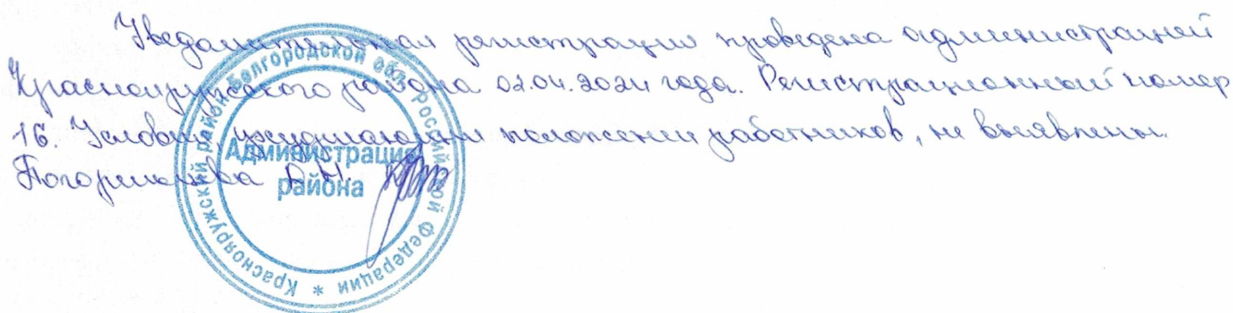 Уведомительная регистрация проведена администрацией
Краснояружского района 02.04.2024 года. Регистрационный номер
16. Условия, ухудшающие положение работников, не выявлены.
Администрация
района
Краснояружский район Белгородской области Российской Федерации *